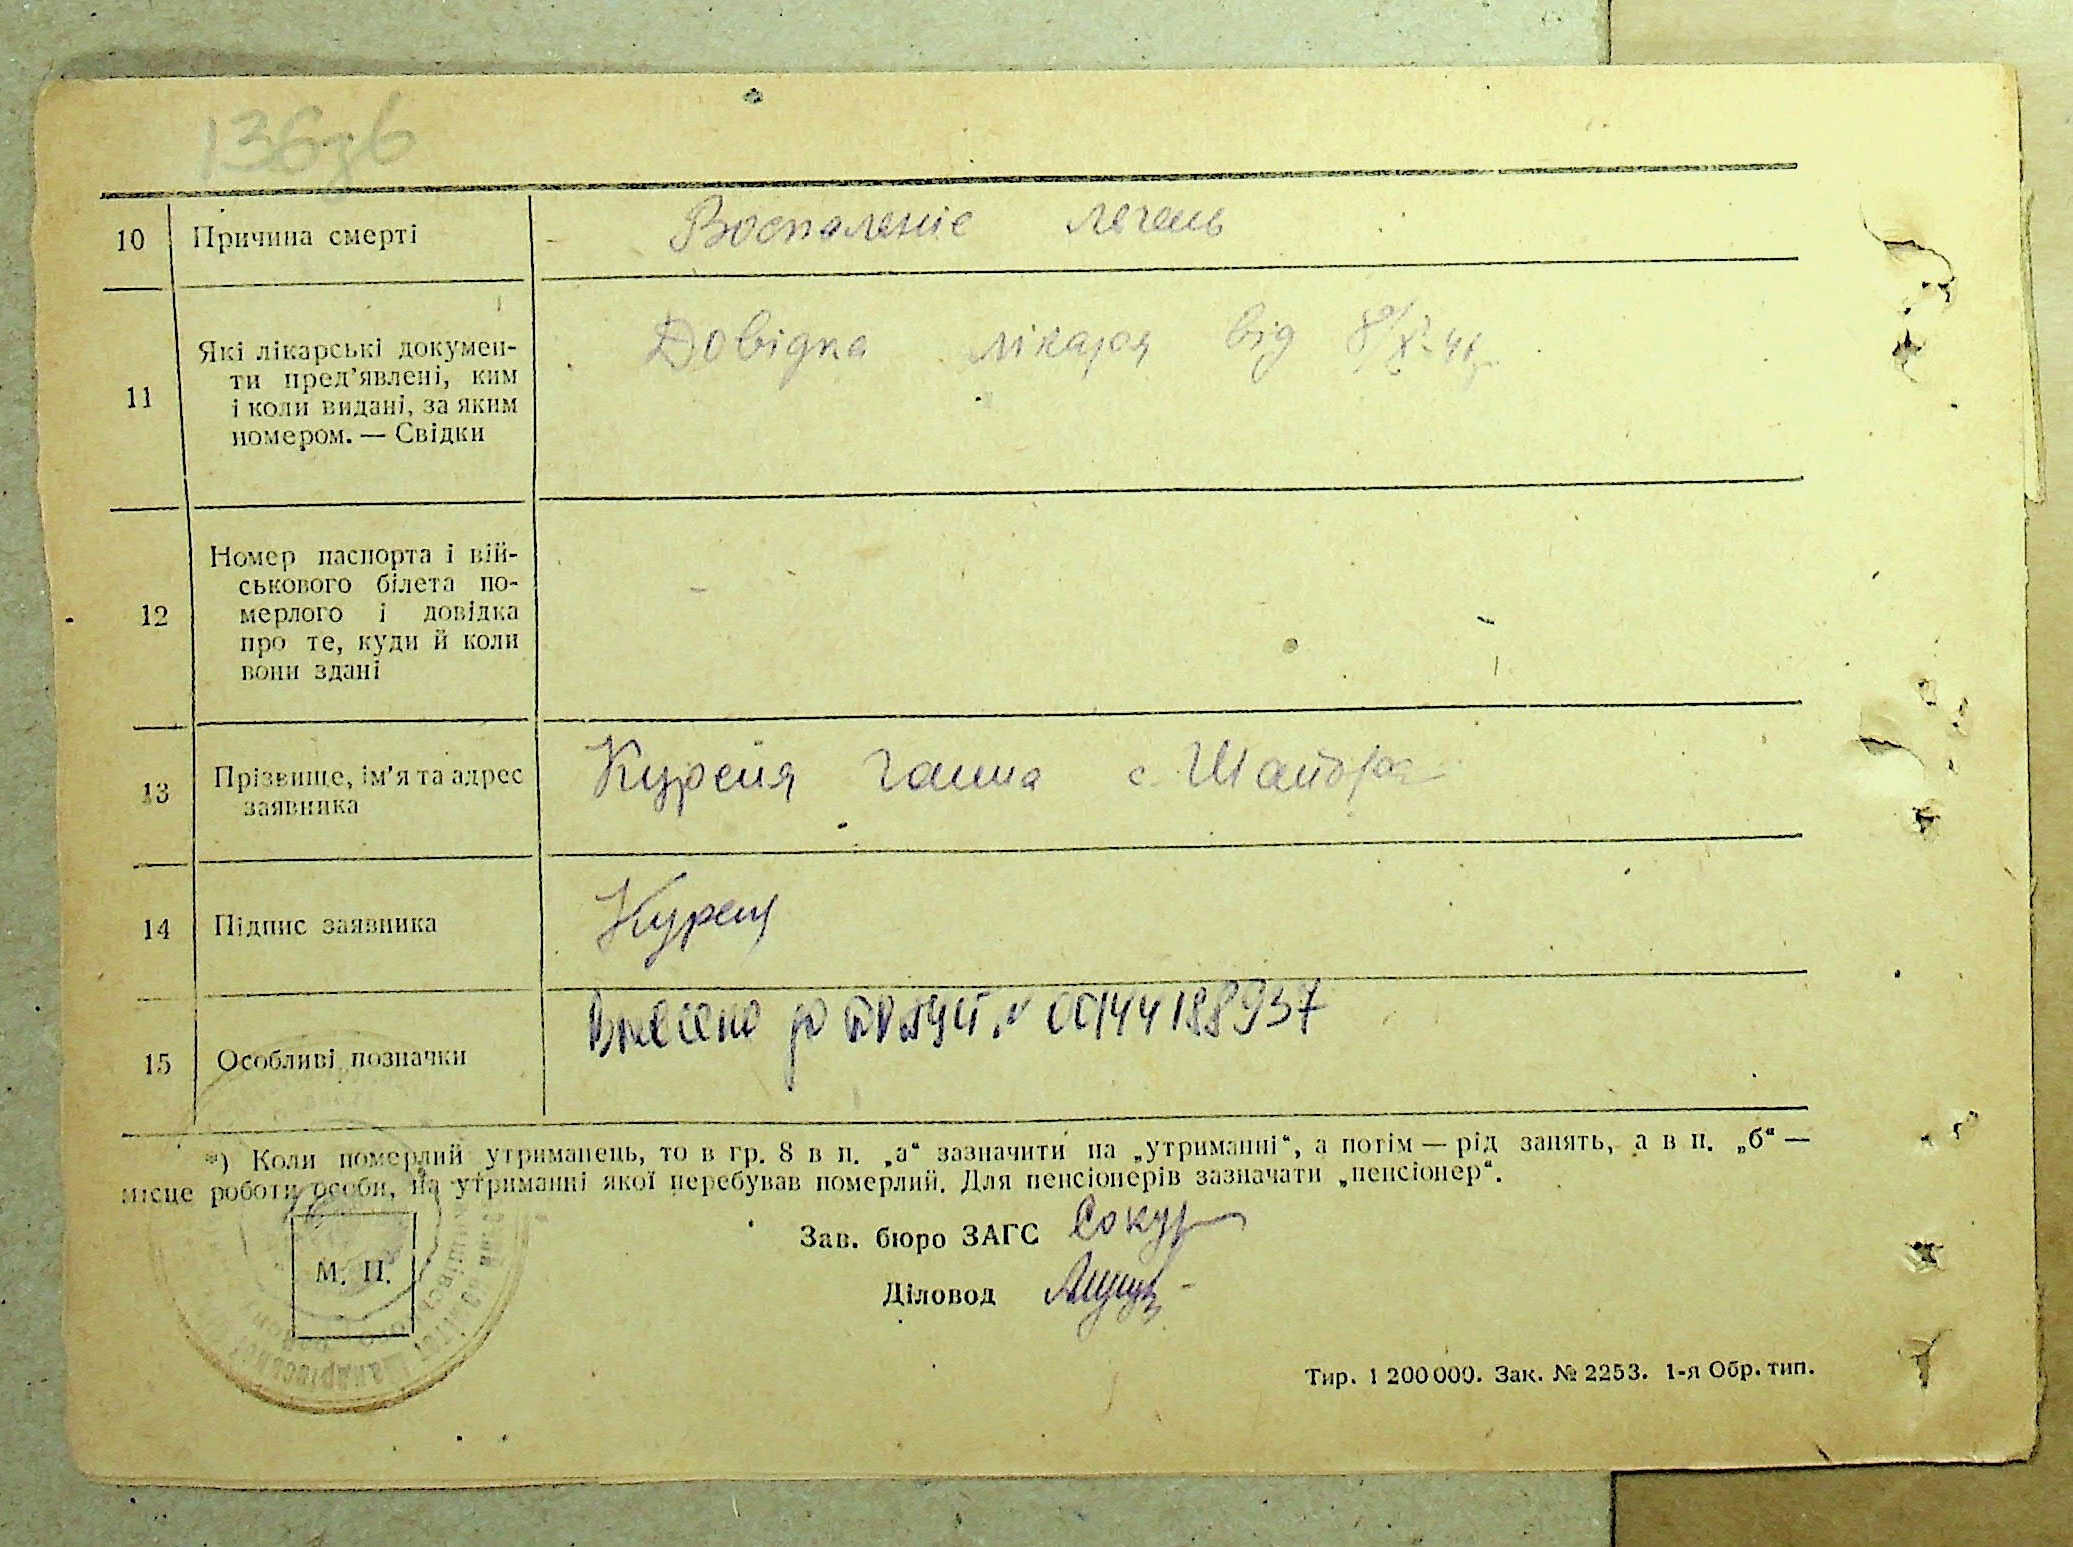 136зв
10 Причина смерті Воспаленіе легень
11 Які лікарські докумен-
ти пред’явлені, ким
і коли видані, за яким
номером. — Свідки
Довідка лікаря від 8/X-41
12 Номер паспорта і вій-
ськового білета по-
мерлого і довідка
про те, куди й коли
вони здані
13 Прізвище, ім’я та адрес
заявника
Ганна с.
14 Підпис заявника
15 Особливі позначки
Внесено до № 00144188937
*) Коли померлий утриманець, то в гр. 8 в п. „а“ зазначити на „утриманні“, а потім — рід занять, а в п. „б“ —
місце роботи особи, на утриманні якої перебував померлий. Для пенсіонерів зазначати „пенсіонер“.
Зав. бюро ЗАГС
М. П.
Діловод
Тир. 1 200 000. Зак. № 2253. 1-я Обр. тип.